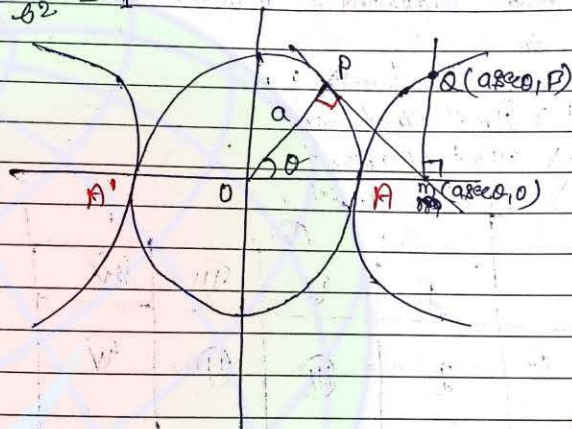 b²
P
Q (asecθ, P)
a
θ
A'
O
A
m (asecθ, 0)